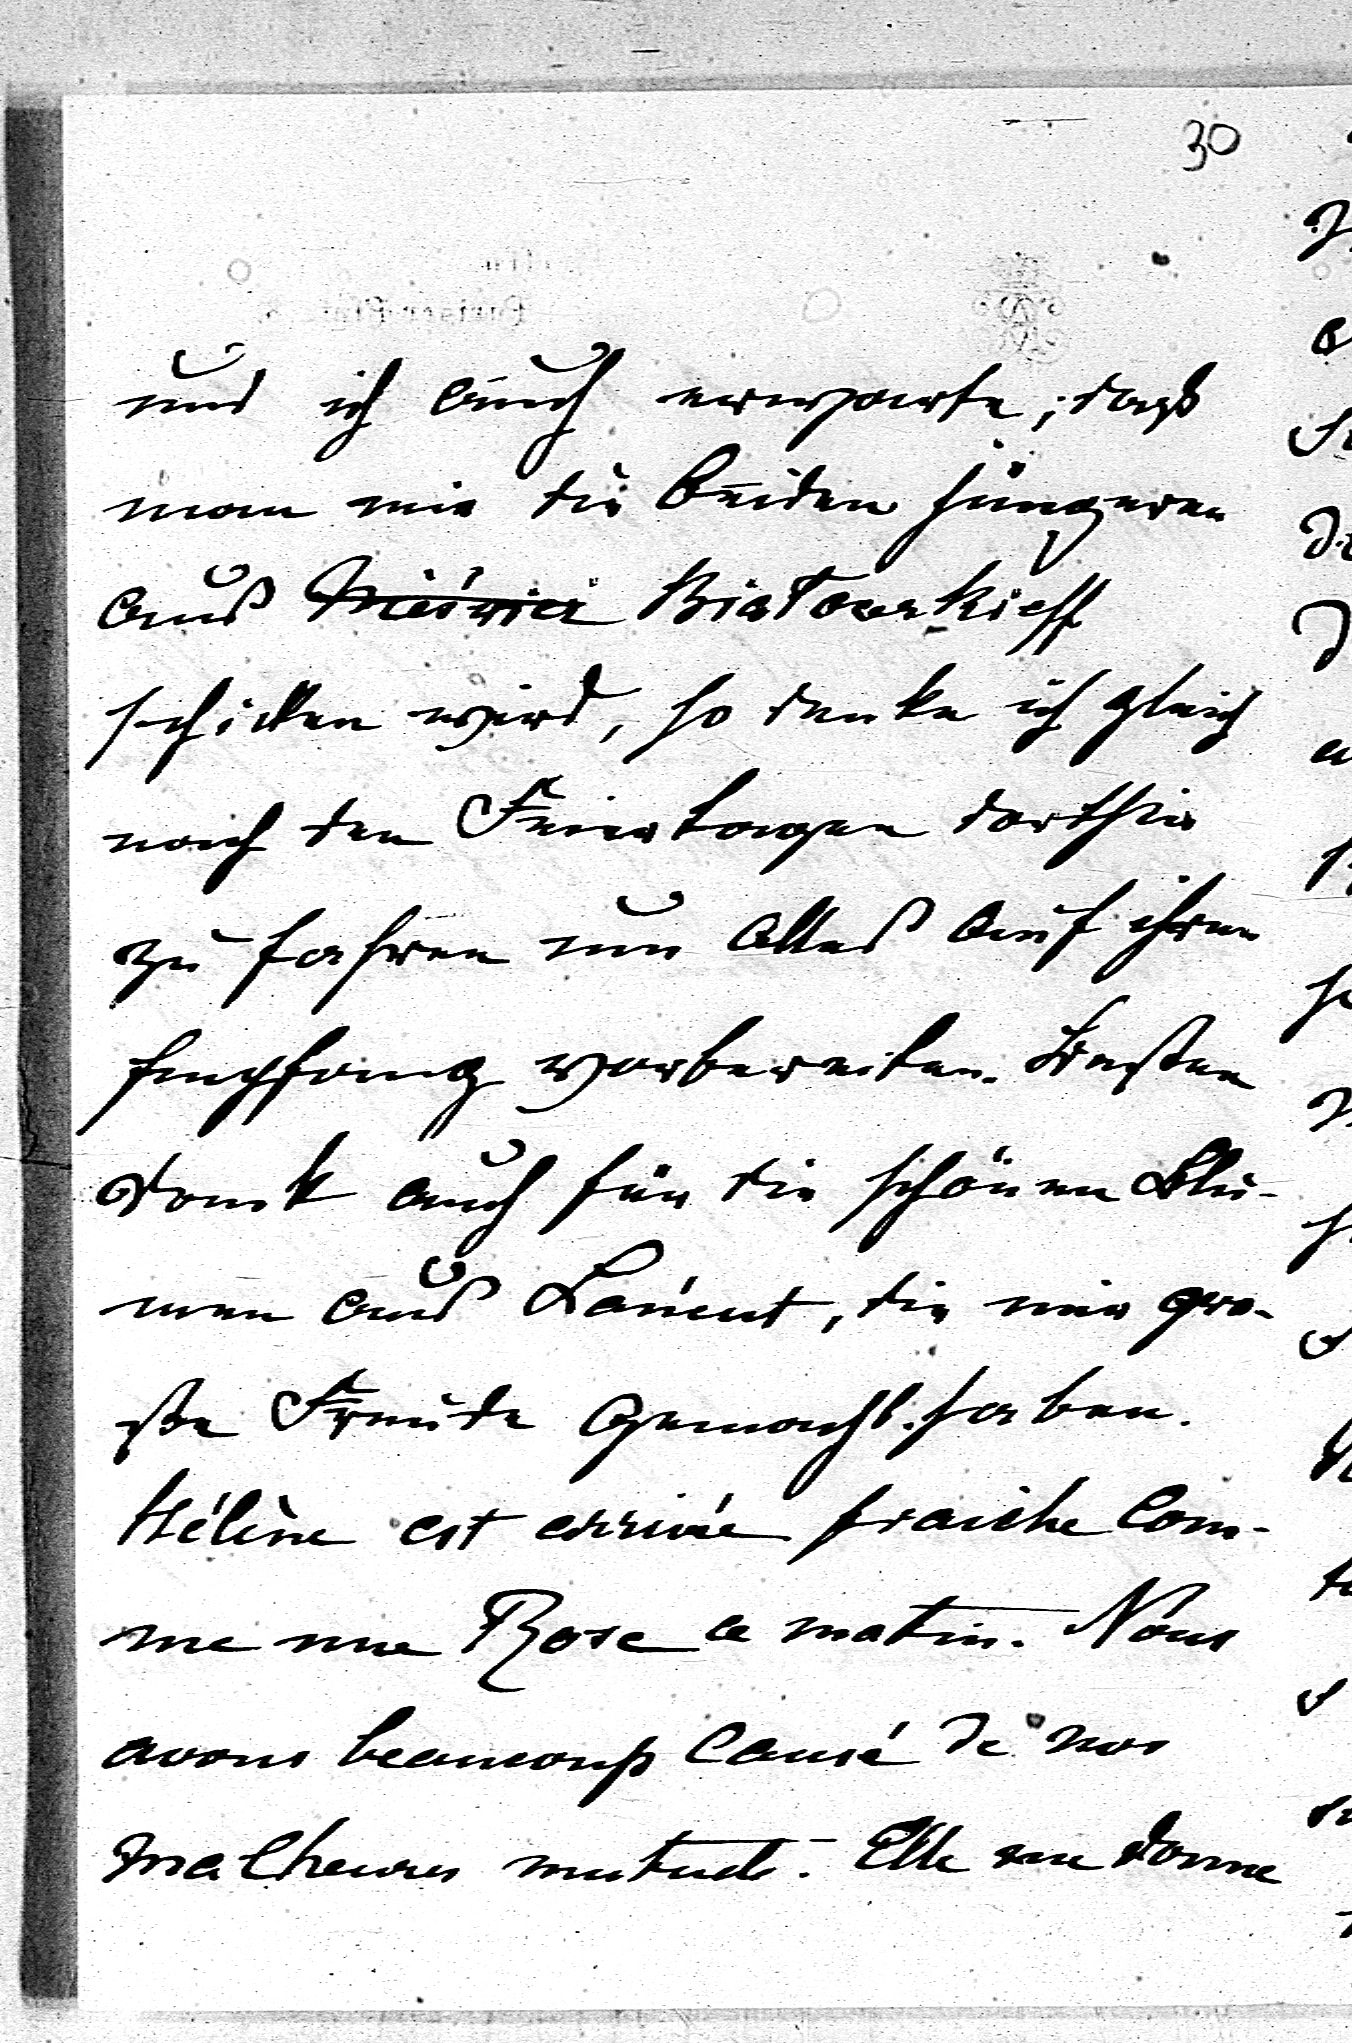 30
und ich auch erwarte, daß
man mir die beiden jüngeren
aus Nieśwież Białocerkieff
schicken wird, so denke ich gleich
nach den Feiertagen dorthin
zu fahren um Alles auf ihren
Empfang vorbereiten. Besten
Dank auch für die schönen Blu-
men aus Łańcut, die mir gro-
ße Freude gemacht haben.
Hélène est arrivée fraiche com-
me une Rose ce matin. Nous
avons beaucoup causé de nos
malheurs mutuels. Elle me donne